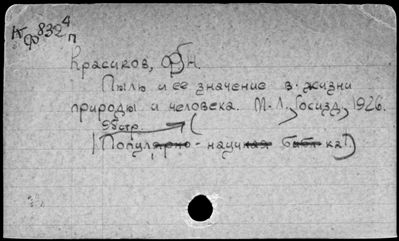 Красиков, Ф.Н.
Пыль и ее значение в жизни
природы и человека. М.-Л., Госизд, 1926.
95 стр.
(Популярно-научная библ-ка)